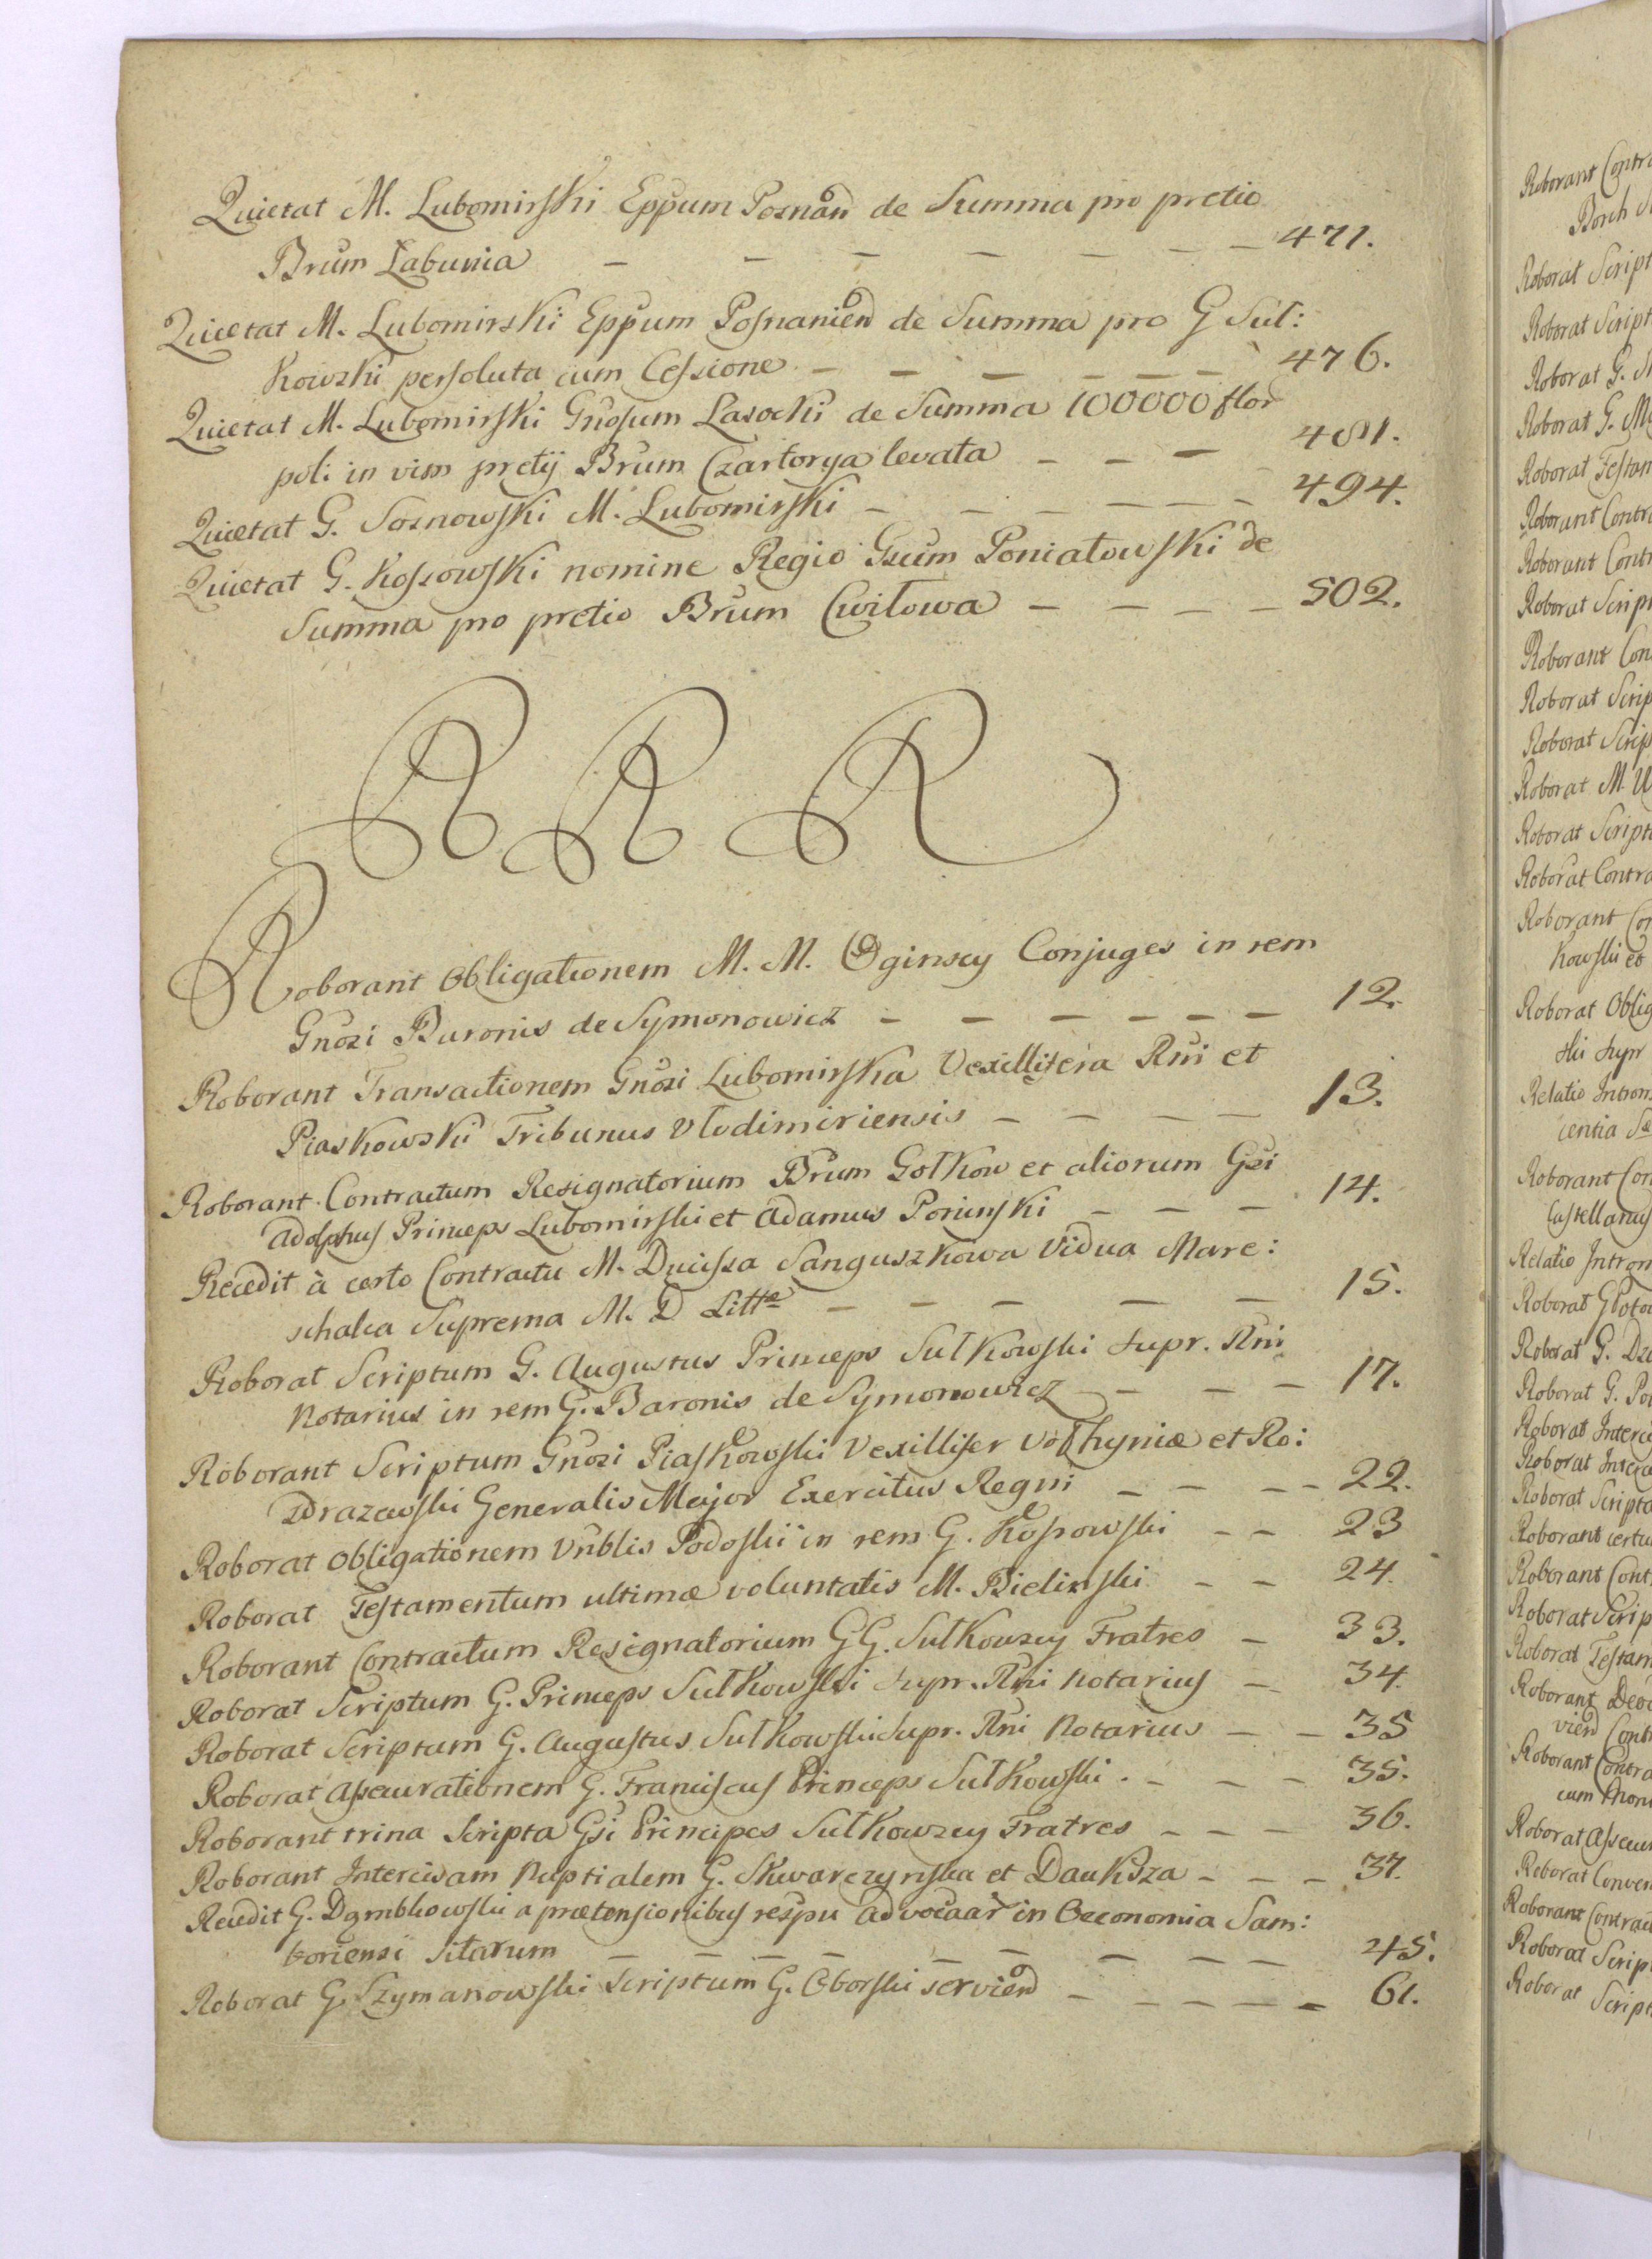 Quietat M. Lubomirski Eppum Posnan de Summa pro pretio
Brum Łabunia — — — — — — 471.
Quietat M. Lubomirski Eppum Posnanien de Summa pro G Sul:
kowski persoluta cum Cessione — — — — — — 476.
Quietat M. Lubomirski Gnosum Lasocki de Summa 100000 flor
pol: in vim pretij Brum Czartorya levata — — — 481.
Quietat G. Sosnowski M. Lubomirski — — — — — — 494.
Quietat G. Kossowski nomine Regio Gsum Poniatowski de
Summa pro pretio Brum Cwiłowa — — — — 502.
R R R
Roborant Obligationem M. M. Oginscy Conjuges in rem
Gnosi Baronis de Symonowicz — — — — — — 12.
Roborant Transactionem Gnosi Lubomirska Vexillifera Rni et
Piaskowski Tribunus Vlodimiriensis — — — — 13.
Roborant Contractum Resignatorium Brum Gołkow et aliorum Gsi
Adolphus Princeps Lubomirski et Adamus Poninski — — — 14.
Recedit à certo Contractu M. Ducissa Sanguszkowa Vidua Mare:
schalca Suprema M. D Littæ — — — — — 15.
Roborat Scriptum G. Augustus Princeps Sułkowski Supr. Rni
Notarius in rem G. Baronis de Symonowicz — — — 17.
Roborant Scriptum Gnosi Piaskowski Vexillifer Vołhyniæ et Ro:
Drazewski Generalis Major Exercitus Regni — — — — 22.
Roborat Obligationem Vrblis Podoski in rem G. Kossowski — — 23
Roborat Testamentum ultimæ voluntatis M. Bielinski — — 24.
Roborant Contractum Resignatorium GG. Sułkowscy Fratres — 33.
Roborat Scriptum G. Princeps Sułkowski Supr. Rni Notarius — 34.
Roborat Scriptum G. Augustus Sułkowski Supr. Rni Notarius — — 35
Roborat Assecurationem G. Franciscus Princeps Sułkowski. — — — 35.
Roborant trina Scripta Gsi Principes Sułkowscy Fratres — — — 36.
Roborant Intercisam Nuptialem G. Skwarczynska et Dauksza — — — 37.
Recedit G. Dąmbkowski a prætensionibus respu Advocaar in Oeconomia Sam:
boriensi sitarum — — — — — — — — — 45.
Roborat G. Szymanowski Scriptum G. Oborski servien — — — — — 61.
Roborant Contr
Borch
Roborat Script
Roborat Script
Roborat G.
Roborat G.
Roborat Testan
Roborant Contr
Roborant Contr
Roborat Scrip
Roborant Con
Roborat Scrip
Roborat Scrip
Roborat M.
Roborat Script
Roborat Contra
Roborant Con
kowski et
Roborat Oblig
ski Supr
Relatio Introm
centia
Roborant Con
Castellanus
Relatio Introm
Roborat
Roborat G.
Roborat G. Po
Roborat Interc
Roborat Interc
Roborat Scripta
Roborant certu
Roborant Cont
Roborat Scrip
Roborat Testam
Roborant
vien Cont
Roborant Contra
cum
Roborat Assecu
Roborat Conven
Roborant Contrac
Roborat Scrip
Roborat Script